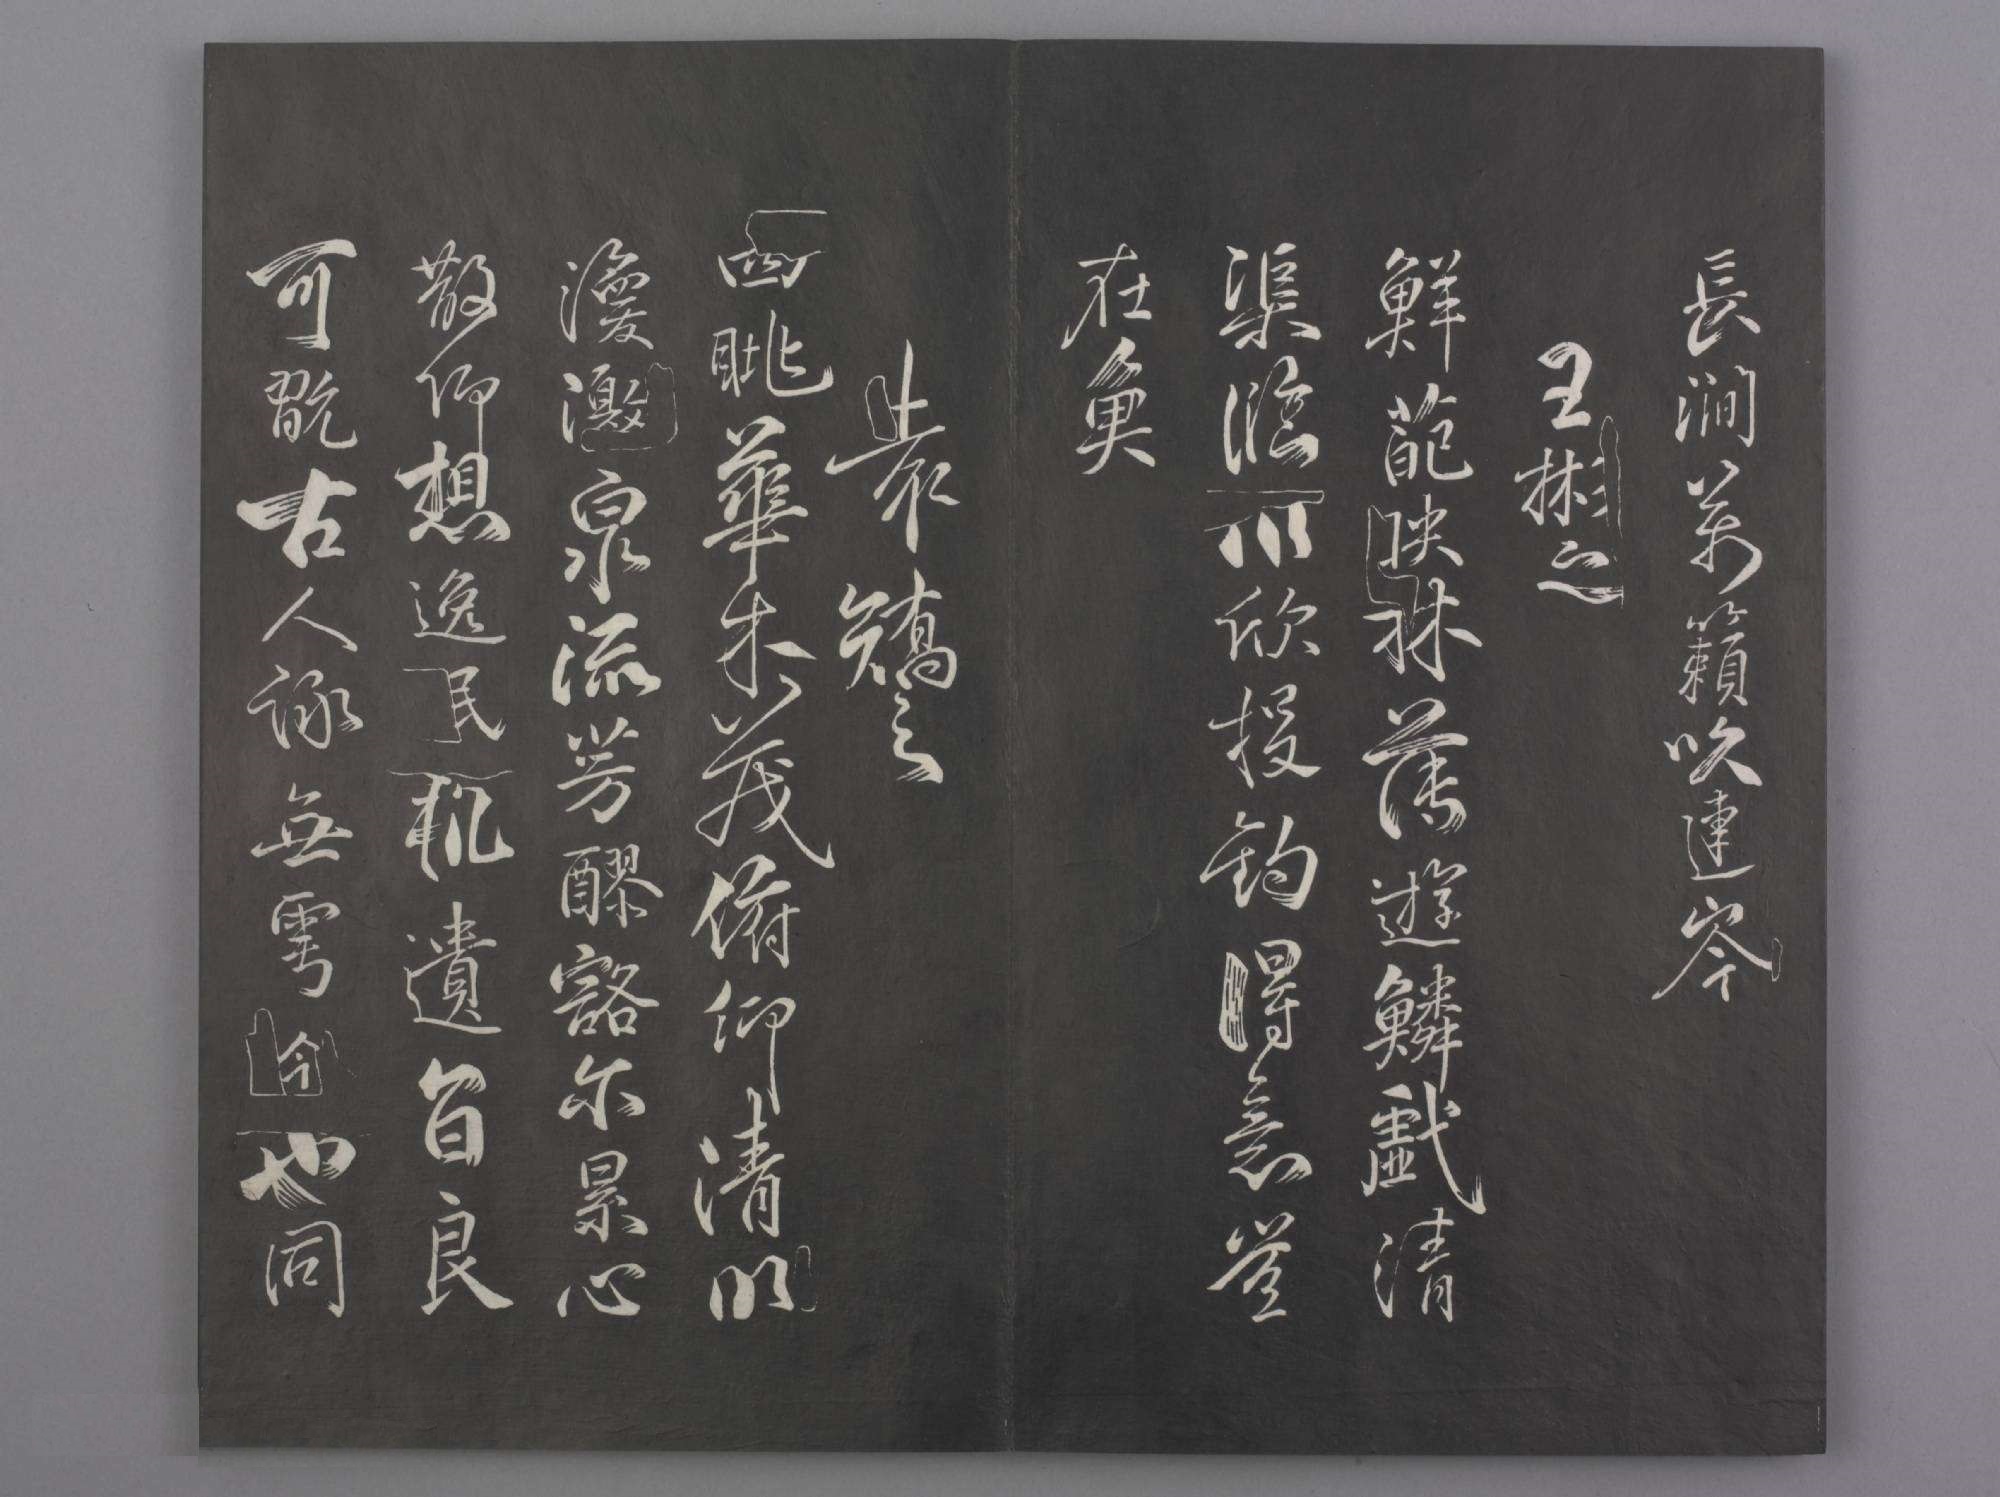 長澗萬籟吹連岑
王彬之
鮮葩映林薄遊鱗戲清
渠臨川欣投釣得意豈
在魚
袁嶠之
四眺華林茂俯仰清川
渙激泉流芳醪豁尔累心
散仰想逸民軌遺音良
可翫古人詠無雩今也同